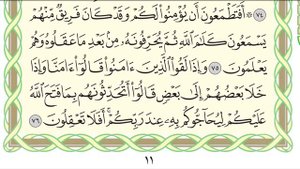 ۞ أَفَتَطْمَعُونَ أَن يُؤْمِنُوا۟ لَكُمْ وَقَدْ كَانَ فَرِيقٌ مِّنْهُمْ
يَسْمَعُونَ كَلَٰمَ ٱللَّهِ ثُمَّ يُحَرِّفُونَهُۥ مِنۢ بَعْدِ مَا عَقَلُوهُ وَهُمْ
يَعْلَمُونَ ٧٥ وَإِذَا لَقُوا۟ ٱلَّذِينَ ءَامَنُوا۟ قَالُوٓا۟ ءَامَنَّا وَإِذَا
خَلَا بَعْضُهُمْ إِلَىٰ بَعْضٍ قَالُوٓا۟ أَتُحَدِّثُونَهُم بِمَا فَتَحَ ٱللَّهُ
عَلَيْكُمْ لِيُحَآجُّوكُم بِهِۦ عِندَ رَبِّكُمْ ۚ أَفَلَا تَعْقِلُونَ ٧٦
١١